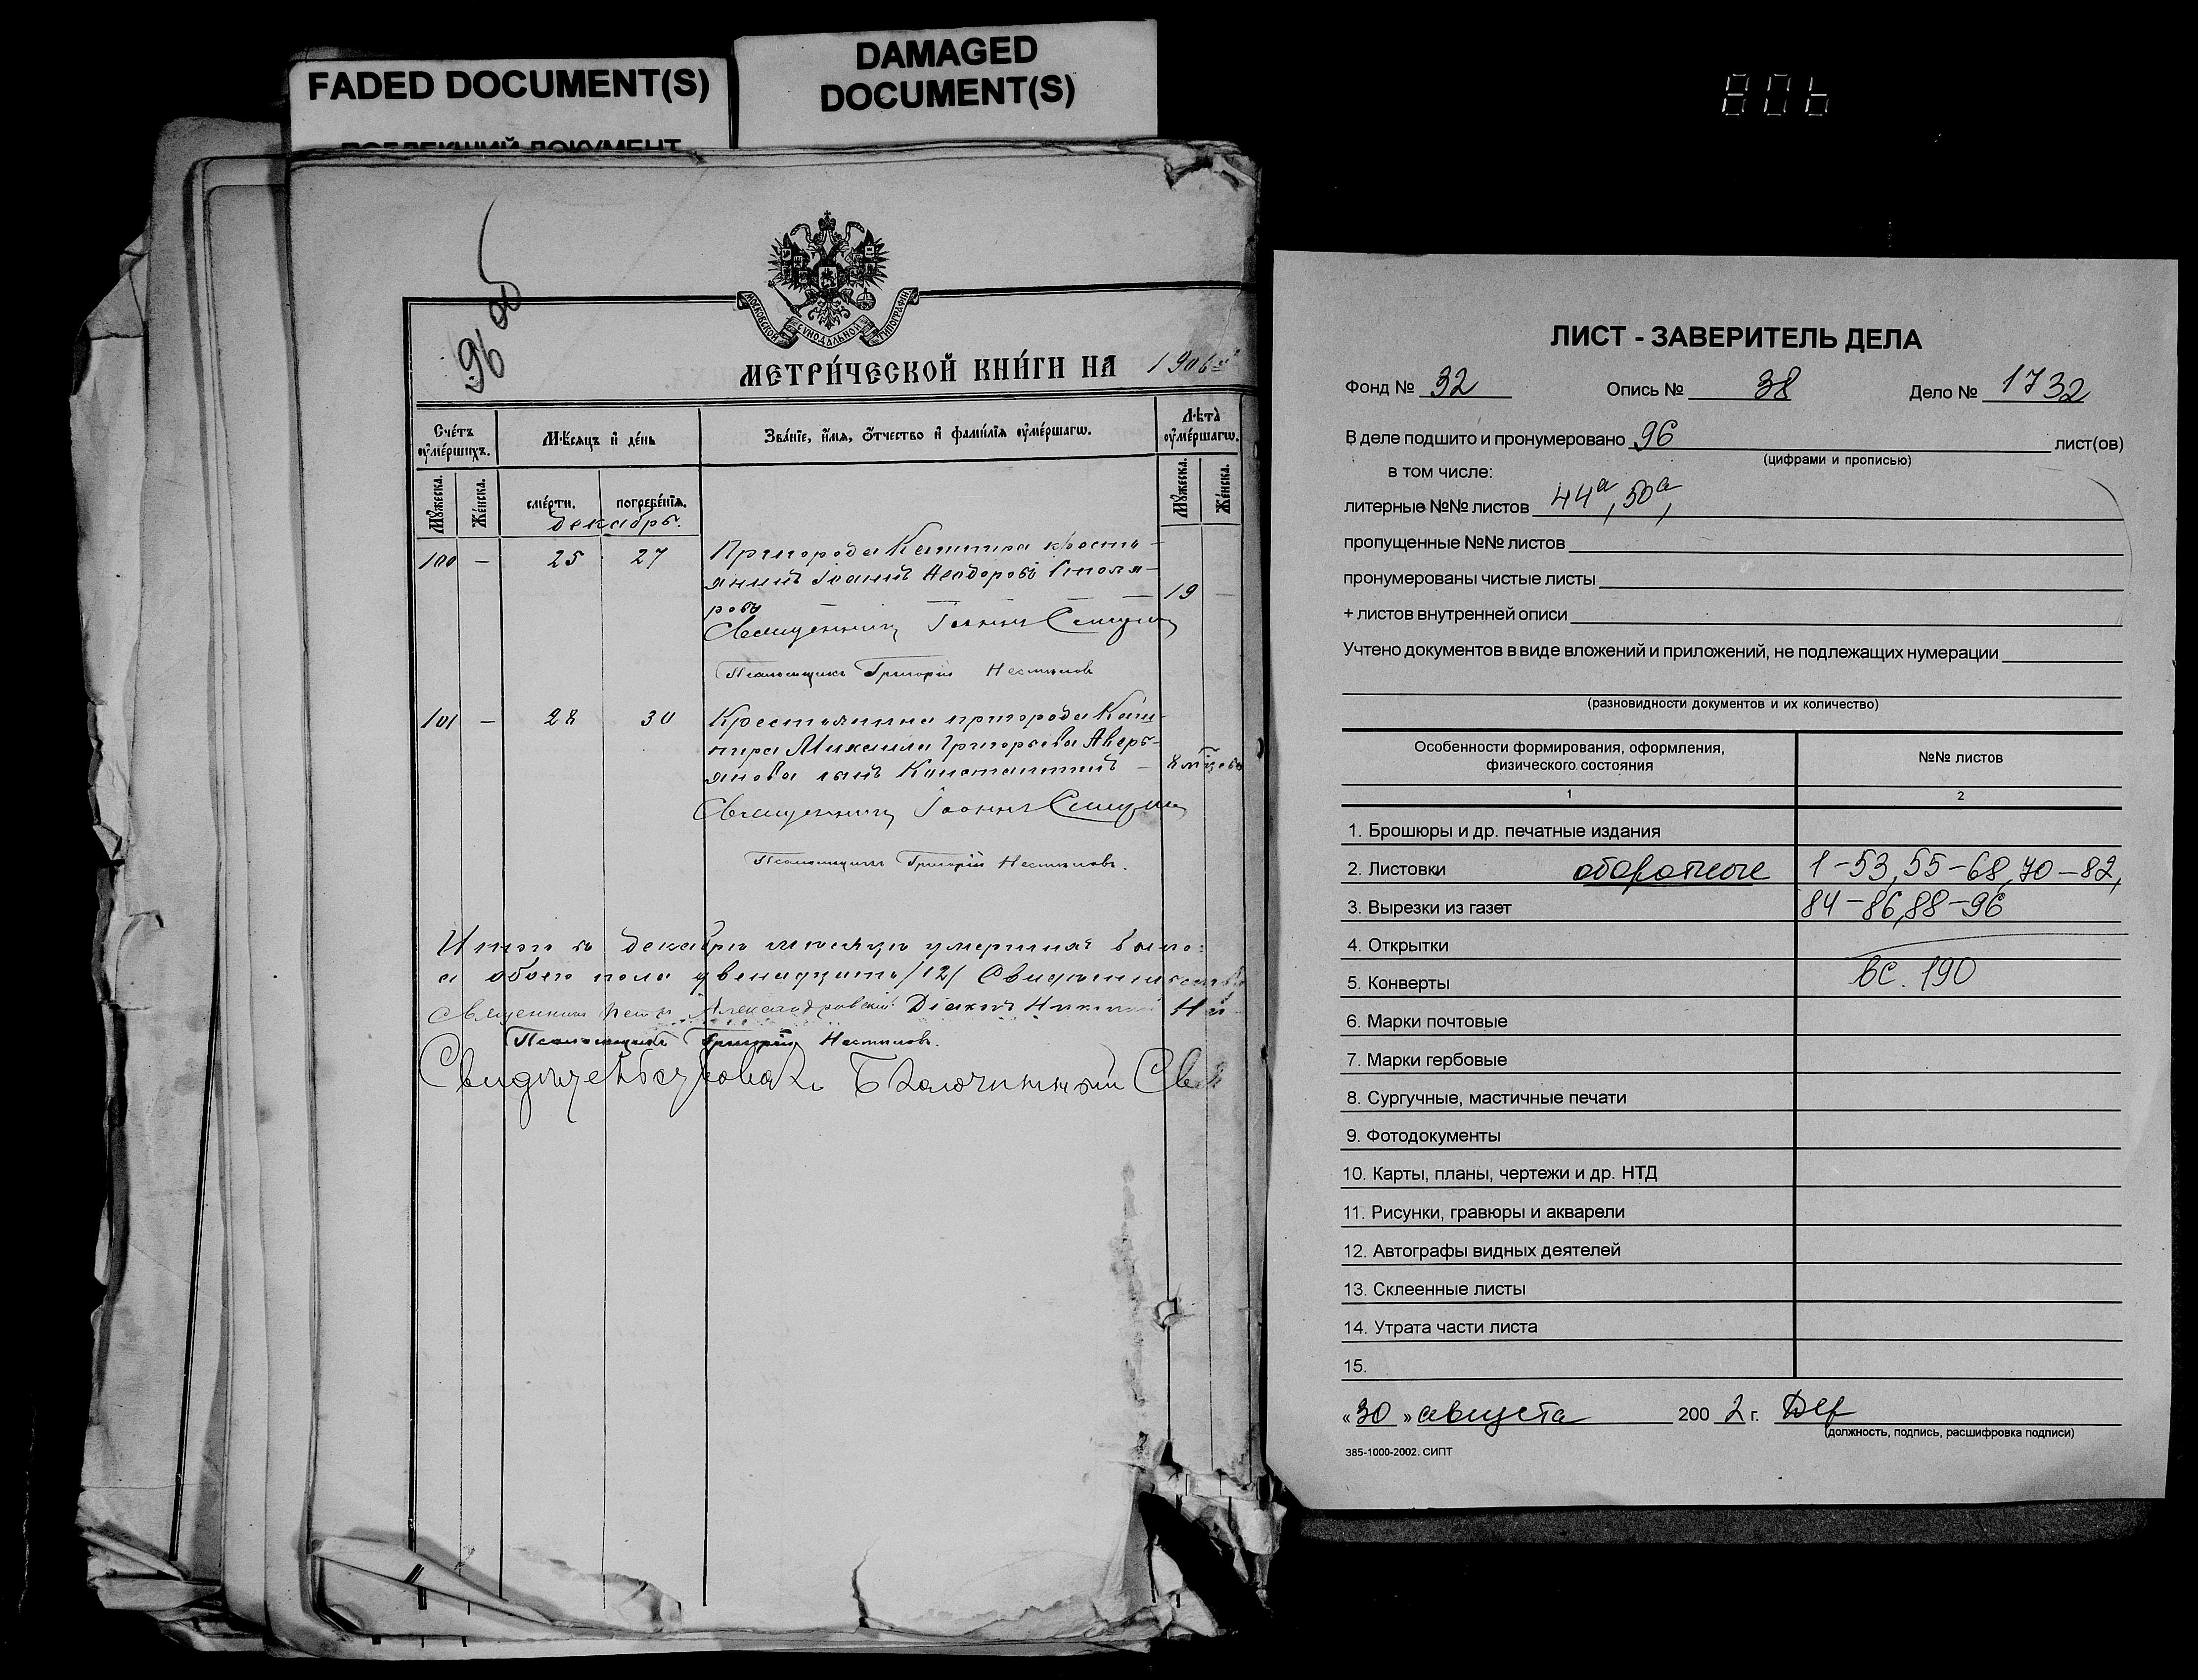 FADED DOCUMENT(S)
ПОБЛЕКШИЙ ДОКУМЕНТ
DAMAGED
DOCUMENT(S)
806
96 об
МОСКОВСКОЙ СѴНОДАЛЬНОЙ ТИПОГРАФІИ
МЕТРИ́ЧЕСКОЙ КНИ́ГИ НА 1906
Сче́тъ ᲂу҆ме́ршихъ.
Мѣ́сяцъ и҆ де́нь
Зва́нїе, и҆́мя, ѻ҆́тчество и҆ фами́лїя ᲂу҆ме́ршагѡ.
Лѣ́та ᲂу҆ме́ршагѡ.
Мꙋ́жеска.
Же́нска.
сме́рти.
погребе́нїя.
Мꙋ́жеска.
Же́нска.
Декабрь.
100 — 25 27 Пригорода Кашпира кресть-
янинъ Іоаннъ Ѳеодоровъ Столя-
ровъ — 19 —
Священникъ Іоаннъ
Псаломщикъ Григорій
101 — 28 30 Крестьянина пригорода Каш-
пира Михаила Григорьева Аверь-
янова сынъ Константинъ — 8 мѣсяцевъ
Священникъ Іоаннъ
Псаломщикъ Григорій
Итого въ декабрѣ мѣсяцѣ умершихъ было:
а обоего пола двенадцать /12/
Священникъ Петръ Александровскій Діаконъ Николай
Псаломщикъ Григорій
Свидѣтельствовалъ Благочинный Свя
ЛИСТ - ЗАВЕРИТЕЛЬ ДЕЛА
Фонд № 32 Опись № 38 Дело № 1732
В деле подшито и пронумеровано 96 лист(ов)
(цифрами и прописью)
в том числе:
литерные №№ листов 44а, 50а,
пропущенные №№ листов
пронумерованы чистые листы
+ листов внутренней описи
Учтено документов в виде вложений и приложений, не подлежащих нумерации
(разновидности документов и их количество)
Особенности формирования, оформления,
физического состояния
№№ листов
1 2
1. Брошюры и др. печатные издания
2. Листовки оборотные 1-53, 55-68, 70-82,
3. Вырезки из газет 84-86, 88-96
4. Открытки
5. Конверты вс. 190
6. Марки почтовые
7. Марки гербовые
8. Сургучные, мастичные печати
9. Фотодокументы
10. Карты, планы, чертежи и др. НТД
11. Рисунки, гравюры и акварели
12. Автографы видных деятелей
13. Склеенные листы
14. Утрата части листа
15.
«30» августа 2002 г.
(должность, подпись, расшифровка подписи)
385-1000-2002. СИПТ